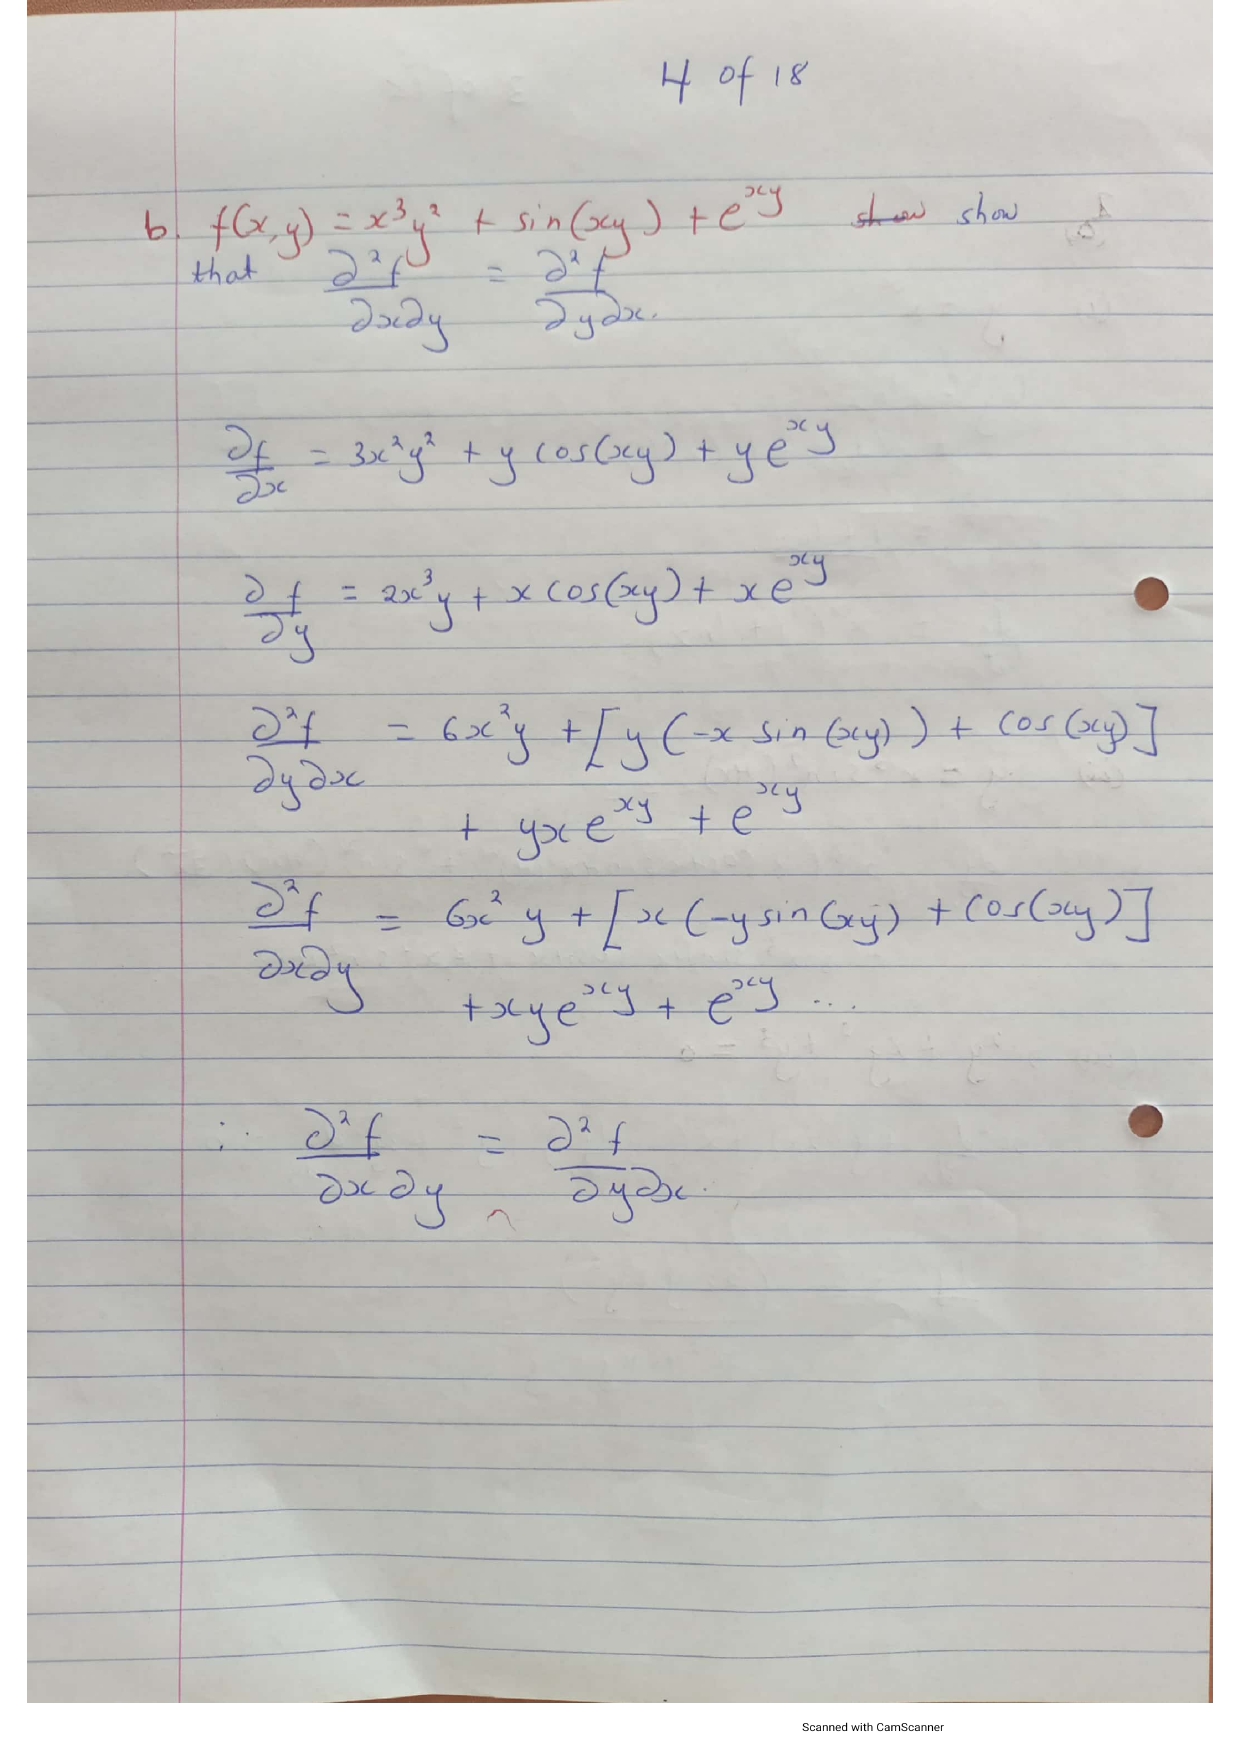 4 of 18
b. f(x,y) = x³y² + sin(xy) + e^xy show show
that ∂²f/∂x∂y = ∂²f/∂y∂x.
∂f/∂x = 3x²y² + y cos(xy) + y e^xy
∂f/∂y = 2x³y + x cos(xy) + x e^xy
∂²f/∂y∂x = 6x²y + [y(-x sin(xy)) + cos(xy)]
+ yx e^xy + e^xy
∂²f/∂x∂y = 6x²y + [x(-y sin(xy) + cos(xy)]
+ xy e^xy + e^xy ...
∴ ∂²f/∂x∂y = ∂²f/∂y∂x.
Scanned with CamScanner